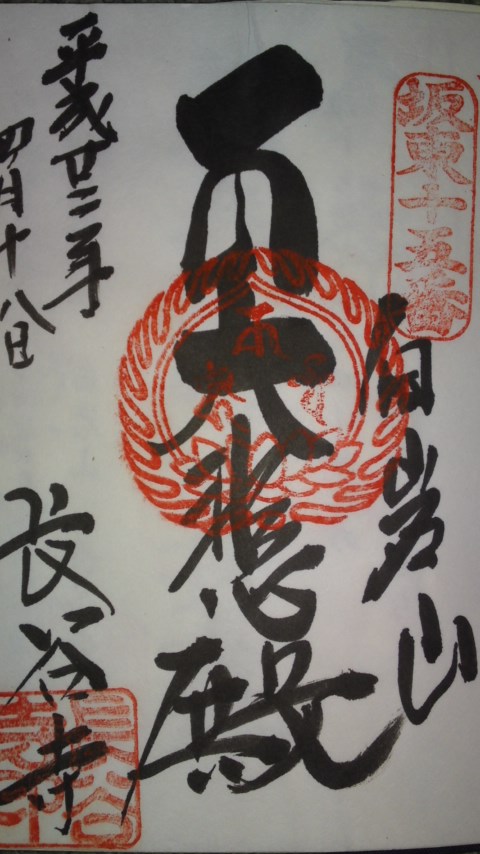 坂東十五番
白岩山
大悲殿
平成廿二年
四月十八日
長谷寺
長谷寺